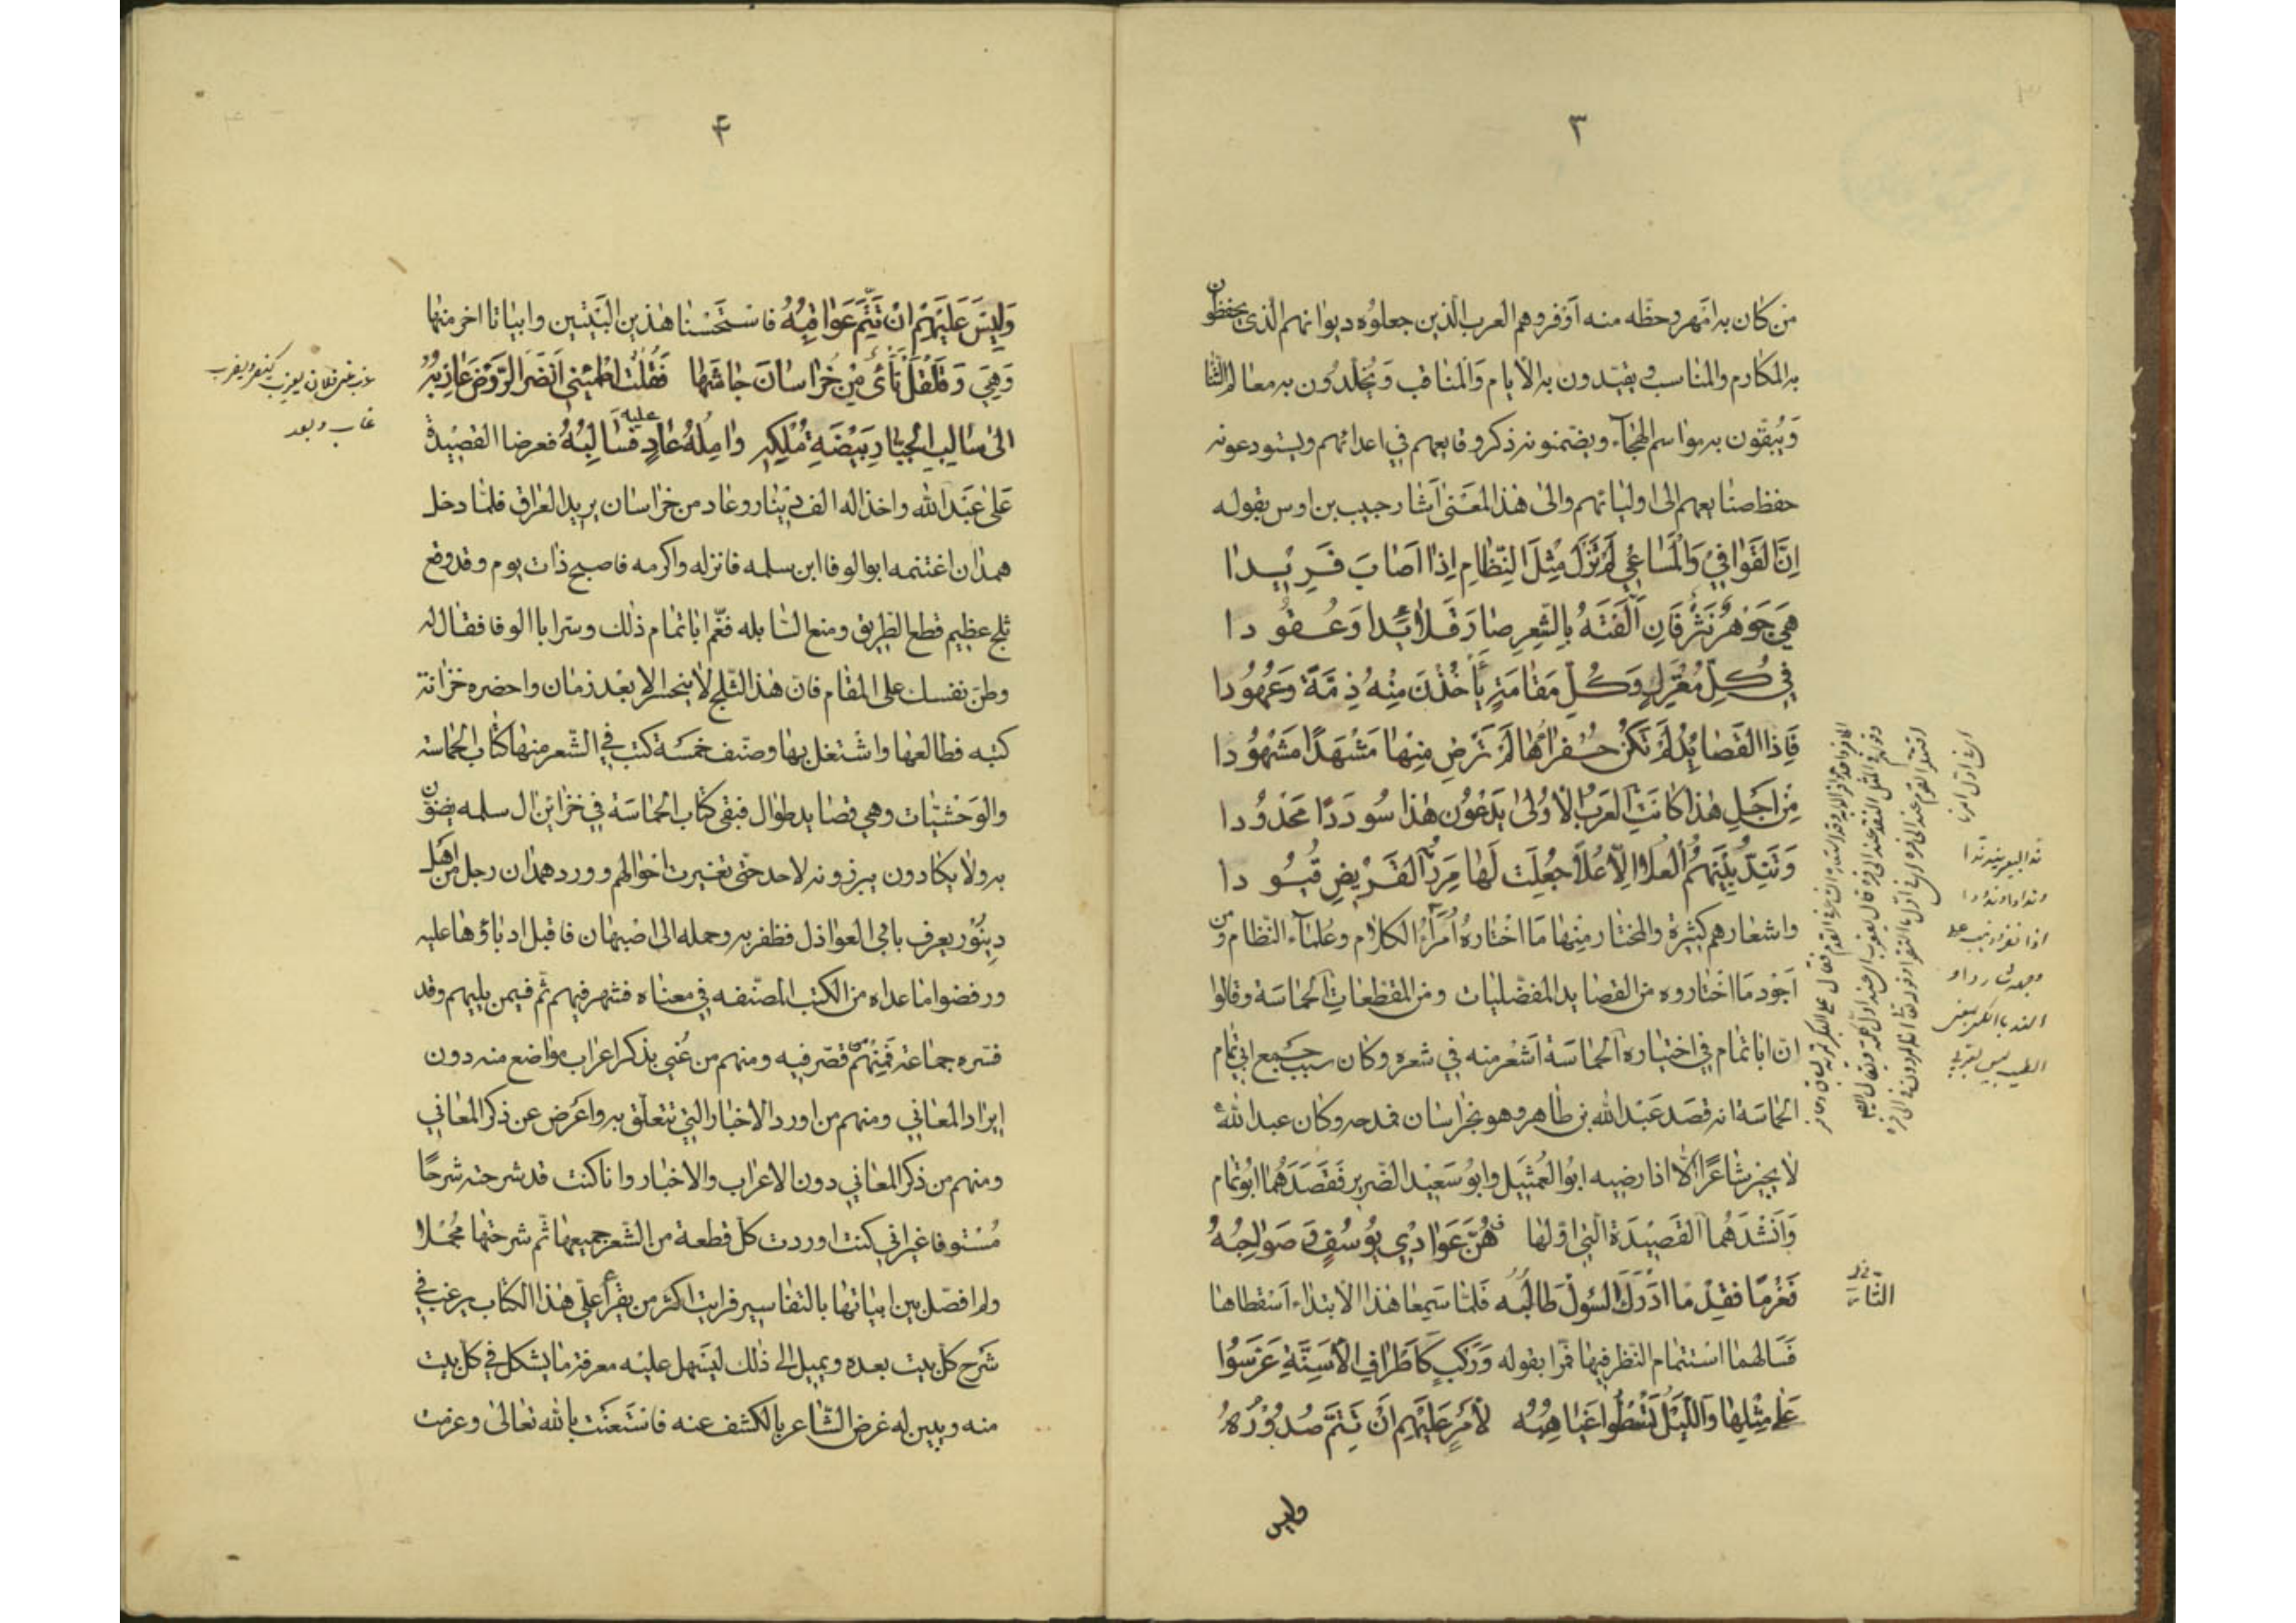 ٣
من كان به امهر وحظه منه اوفر وهم العرب الذين جعلوه ديوانهم الذى يحفظون
به المكارم والمناسب ويقيدون به الايام والمناقب ويخلدون به معالم الثنا
ويبقون به مواسم الهجآء ويضمنونه ذكر وقايعهم في اعدائهم ويستودعونه
حفظ صنايعهم الى اوليائهم والى هذا المعنى اشار حبيب بن اوس بقوله
اِنَّ القَوَافِيَ وَالْمَسَاعِي لَمْ تَزَلْ مِثْلَ النِّظَامِ اِذَا اَصَابَ فَرِيْدا
هِيَ جَوْهَرٌ نَثْرٌ فَاِن اَلَّفْتَهُ بِالشِّعرِ صَارَ قَلائِدًا وَعُقُودا
في كُلِّ مُعْتَرَكٍ وَكُلِّ مَقَامَةٍ يَأْخُذْنَ مِنْهُ ذِمَّةً وَعُهُودا
فَاِذَا القَصَايِدُ لَمْ تَكُنْ خُفَرَاءَهَا لَمْ تَرْضَ مِنْهَا مَشْهَدًا مَشْهُودا
مِنْ اَجلِ هٰذَا كَانَتِ العَرَبُ الْاُولىٰ يَدْعُونَ هٰذا سُودَدًا مَحْدُودا
وَتَنِدُّ بَيْنَهُمُ العُلا الِّا عُلاً جُعِلَت لَهَا مِرَرُ القَرِيْضِ قُيُودا
واشعارهم كثيرة والمختار منها ما اختاره امرآء الكلام وعلمآء النظام ومن
اجود ما اختاروه من القصايد المفضليات ومن المقطعات الحماسة وقالوا
ان ابا تمام في اختياره الحماسة اشعر منه في شعره وكان سبب جمع ابي تمام
الحماسة انه قصد عبد الله بن طاهر وهو بخراسان فمدحه وكان عبد الله
لا يجيز شاعرًا الا اذا رضيه ابو العميثل وابو سعيد الضرير فقصدهما ابو تمام
وانشدهما القصيدة التي اولها هُنَّ عَوَادِي يُوسُفٍ وَصَوَاحِبُهُ
فَعَزْمًا فقِدْمًا ادْرَكَ السُولَ طَالِبُه فلما سمعا هذا الابتداء اسقطاها
فسالهما استتمام النظر فيها فمرا بقوله وَرَكْبٍ كَاَطْرَافِ الْاَسِنَّةِ عَرَّسُوا
عَلى مِثْلِهَا وَاللَّيْلُ تَسْطُو غَيَاهِبُه لِاَمْرٍ عَلَيْهِم اَنْ تَتِمَّ صُدُوْرُهُ
وليس
ند البعير يند ندا
٤
وَلَيْسَ عَلَيْهِم ان تَتِمَّ عَوَاقِبُهُ فاستحسنا هذين البيتين وابياتا اخر منها
وهي وَقَلْقَلَ نَأْيٌ مِنْ خُرَاسَانَ جَاشَهَا فَقُلْتُ اطْمَئِنّي اَنْضَرَ الرَّوْضِ عَازِبُهُ
الى سالبِ الجبّار بَيْضَةَ مُلْكِهِ وامِلُهُ غادٍ عليه فَسَالِبُهُ فعرضا القصيدة
على عبد الله واخذا له الف دينار وعاد من خراسان يريد العراق فلما دخل
همدان اغتنمه ابو الوفا ابن سلمه فانزله واكرمه فاصبح ذات يوم وقد وقع
ثلج عظيم قطع الطريق ومنع السابله فغم ابا تمام ذلك وسر ابا الوفا فقال له
وطن نفسك على المقام فان هذا الثلج لا ينحسر الا بعد زمان واحضره خزانة
كتبه فطالعها واشتغل بها وصنف خمسة كتب في الشعر منها كتاب الحماسة
والوحشيات وهي قصايد طوال فبقى كتاب الحماسة في خزاين ال سلمه يضنون
به ولا يكادون يبرزونه لاحد حتى تغيرت احوالهم وورد همدان رجل من اهل
دينور يعرف بابي العواذل فظفر به وحمله الى اصبهان فاقبل ادباؤها عليه
ورفضوا ما عداه من الكتب المصنفه في معناه فشهر فيهم ثم فيمن يليهم وقد
فسره جماعة فمنهم من قصر فيه ومنهم من عُني بذكر اعراب مواضع منه دون
ايراد المعاني ومنهم من اورد الاخبار التي تتعلق به واعرض عن ذكر المعاني
ومنهم من ذكر المعاني دون الاعراب والاخبار وانا كنت قد شرحته شرحًا
مستوفا غير اني كنت اوردت كل قطعة من الشعر جميعها ثم شرحتها مجملا
ولم افصل بين ابياتها بالتفاسير فرايت اكثر من يقرأ علي هذا الكتاب يرغب في
شرح كل بيت بعده ويميل الى ذلك ليسهل عليه معرفة ما يشكل في كل بيت
منه ويبين له غرض الشاعر بالكشف عنه فاستعنت بالله تعالى وعزمت
غاب وبعد